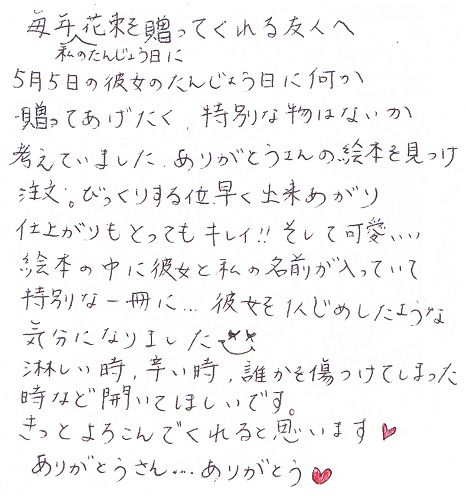 毎年花束を贈ってくれる友人へ
私のたんじょう日に
5月5日の彼女のたんじょう日に何か
贈ってあげたく、特別な物はないか
考えていました、ありがとうさんの絵本を見つけ
注文。びっくりする位早く出来あがり
仕上がりもとってもキレイ!!そして可愛いい
絵本の中に彼女と私の名前が入っていて
特別な一冊に…彼女を1人じめしたような
気分になりました
淋しい時、辛い時、誰かを傷つけてしまった
時など開いてほしいです。
きっとよろこんでくれると思います♥
ありがとうさん…ありがとう♥